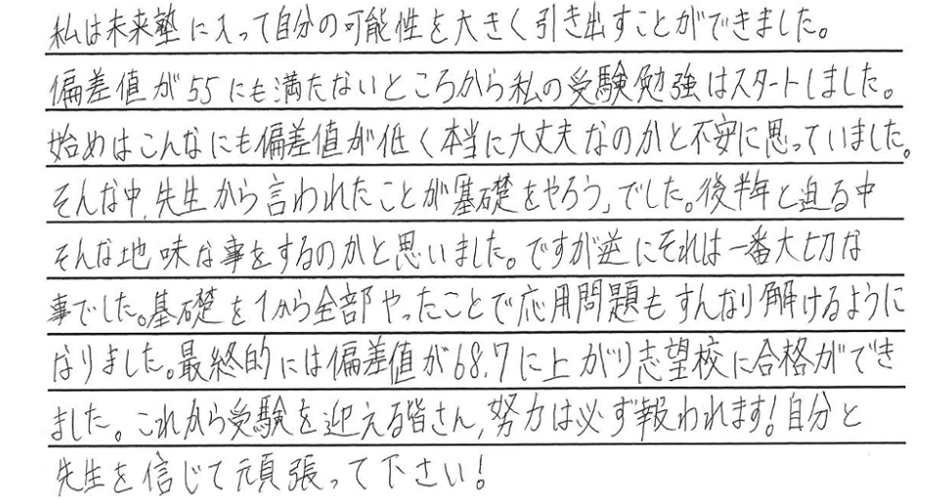 私は未来塾に入って自分の可能性を大きく引き出すことができました。
偏差値が55にも満たないところから私の受験勉強はスタートしました。
始めはこんなにも偏差値が低く本当に大丈夫なのかと不安に思っていました。
そんな中、先生から言われたことが「基礎をやろう」でした。後半年と迫る中
そんな地味な事をするのかと思いました。ですが逆にそれは一番大切な
事でした。基礎を1から全部やったことで応用問題もすんなり解けるように
なりました。最終的には偏差値が68.7に上がり志望校に合格ができ
ました。これから受験を迎える皆さん、努力は必ず報われます!自分と
先生を信じて頑張って下さい!